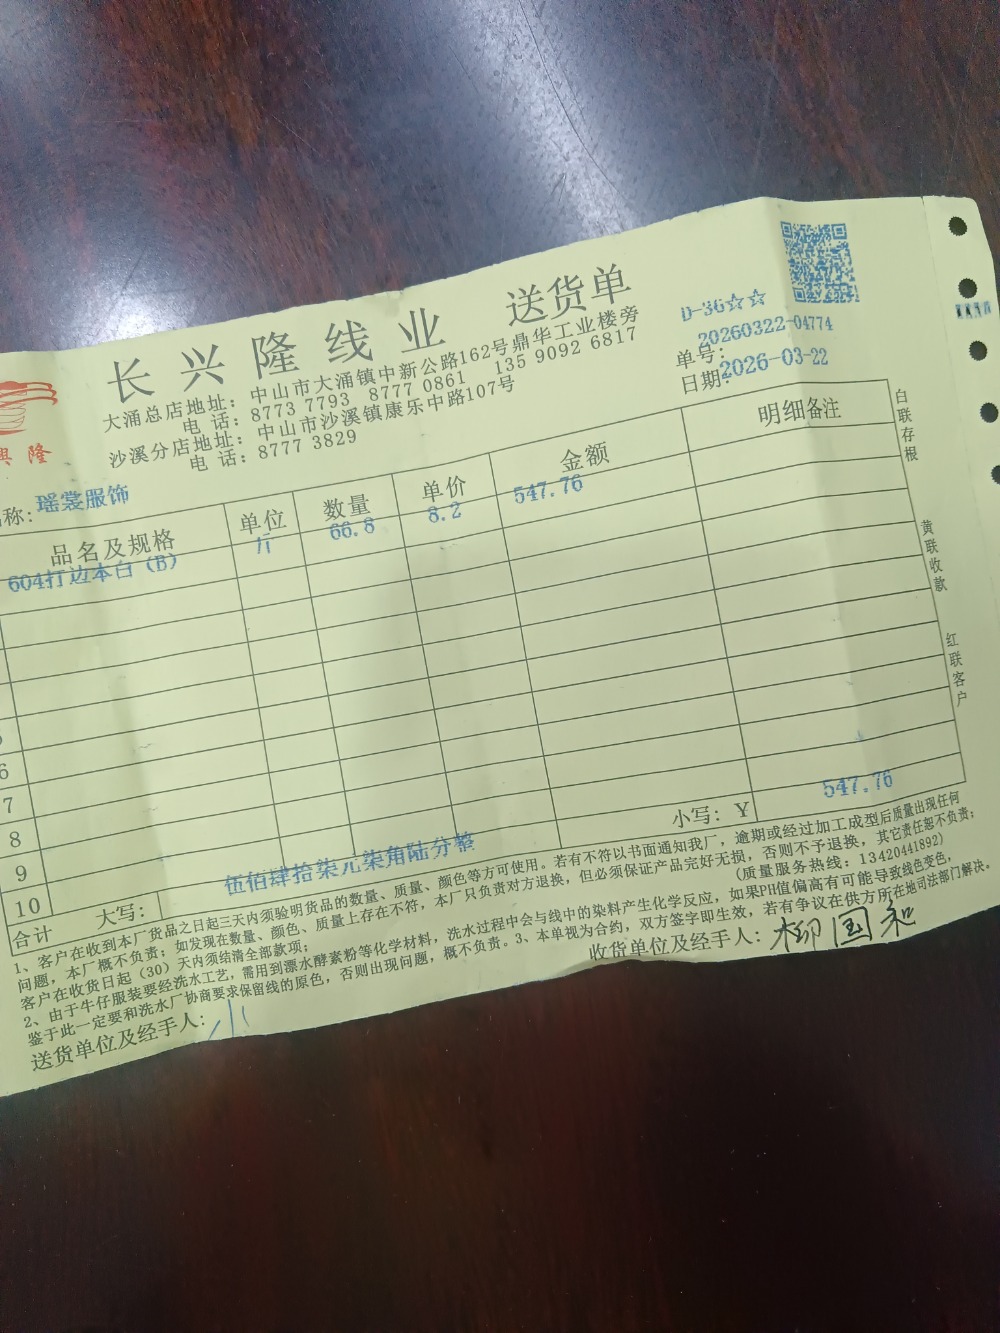 长兴隆线业 送货单
D-36☆☆
大涌总店地址：中山市大涌镇中新公路162号鼎华工业楼旁
电 话：8773 7793 8777 0861 135 9092 6817
沙溪分店地址：中山市沙溪镇康乐中路107号
电 话：8777 3829
单号：20260322-04774
日期：2026-03-22
興隆
称：瑶裳服饰
品名及规格 单位 数量 单价 金额 明细备注
604打边本白（B） 斤 66.8 8.2 547.76
6
7
8
9
10
合计 大写：伍佰肆拾柒元柒角陆分整 小写：￥ 547.76
白联存根
黄联收款
红联客户
1、客户在收到本厂货品之日起三天内须验明货品的数量、质量、颜色等方可使用。若有不符以书面通知我厂，逾期或经过加工成型后质量出现任何
问题，本厂概不负责；如发现在数量、颜色、质量上存在不符，本厂只负责对方退换，但必须保证产品完好无损，否则不予退换，其它责任恕不负责；
客户在收货日起（30）天内须结清全部款项；（质量服务热线：13420441892）
2、由于牛仔服装要经洗水工艺，需用到漂水酵素粉等化学材料，洗水过程中会与线中的染料产生化学反应，如果PH值偏高有可能导致线色变色，
鉴于此一定要和洗水厂协商要求保留线的原色，否则出现问题，概不负责。3、本单视为合约，双方签字即生效，若有争议在供方所在地司法部门解决。
送货单位及经手人：
收货单位及经手人：柳国和